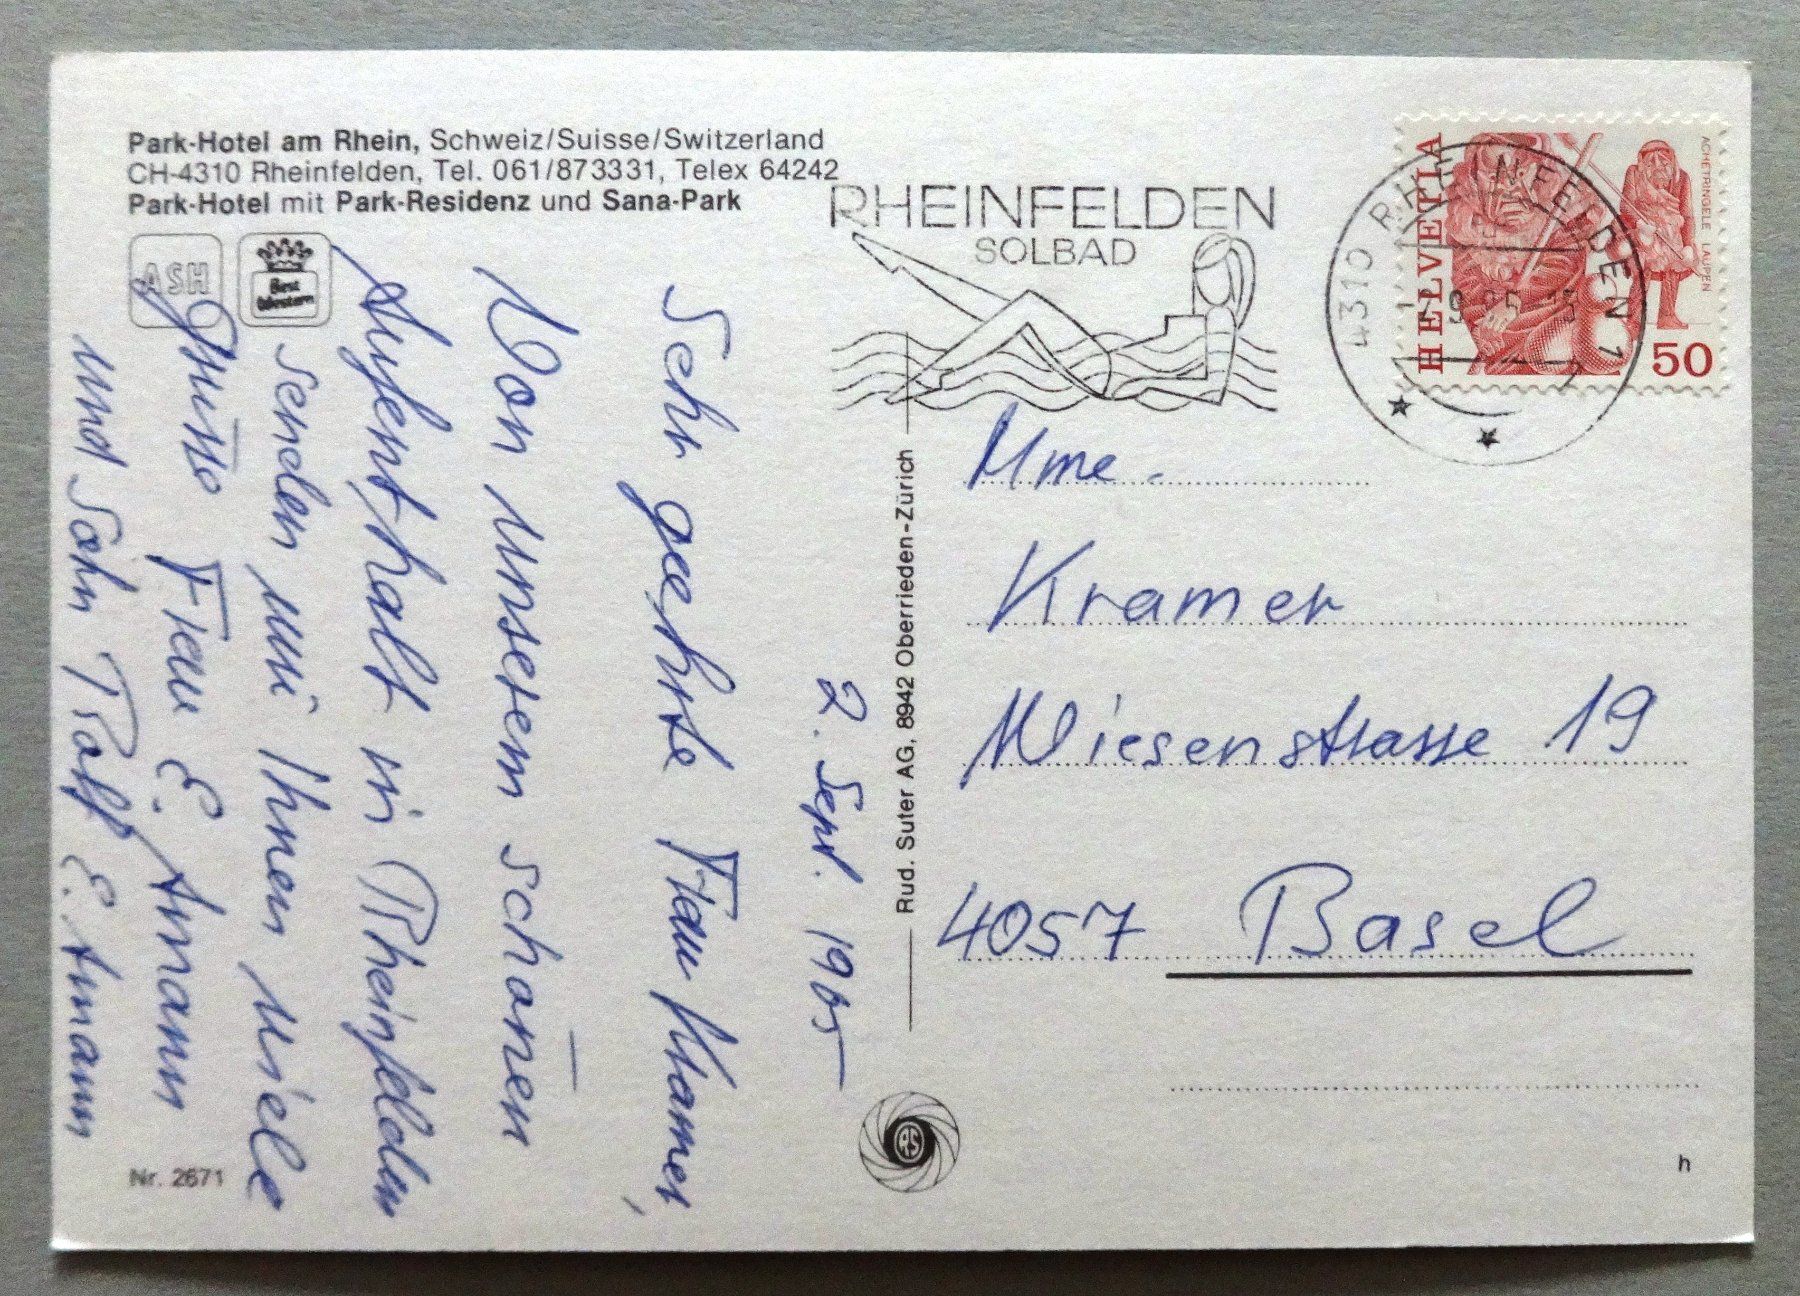 Park-Hotel am Rhein, Schweiz/Suisse/Switzerland
CH-4310 Rheinfelden, Tel. 061/873331, Telex 64242
Park-Hotel mit Park-Residenz und Sana-Park
ASH
Best
Western
RHEINFELDEN
SOLBAD
4310 RHEINFELDEN 1
HELVETIA
ACHETRINGELE LAUPEN
50
2. Sept. 1985
Sehr geehrte Frau Kramer,
Von unserem schönen
Aufenthalt in Rheinfelden
senden wir Ihnen viele
Grüsse Frau E. Amann
und Sohn Rolf E. Amann
Rud. Suter AG, 8942 Oberrieden-Zürich
Mme.
Kramer
Wiesenstrasse 19
4057 Basel
Nr. 2671
RS
h